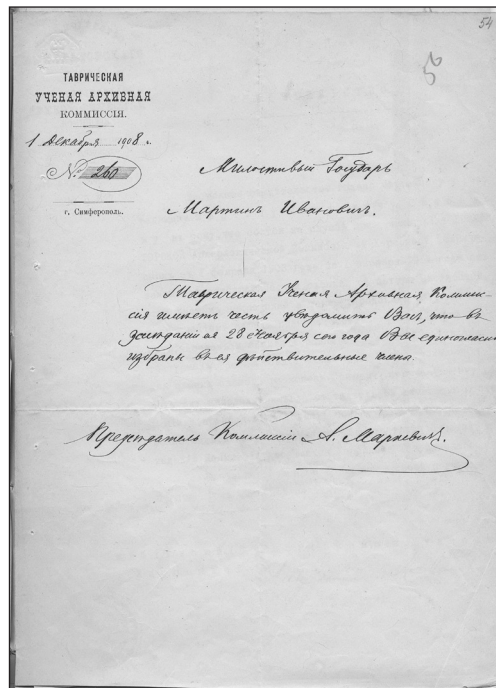 54
56
ТАВРИЧЕСКАЯ
УЧЕНАЯ АРХИВНАЯ
КОММИССІЯ.
1 Декабря 1908 г.
№ 260
г. Симферополь.
Милостивый Государь
Мартинъ Ивановичъ.
Таврическая Ученая Архивная Коммис-
сія имѣетъ честь увѣдомить Васъ, что въ
засѣданіи ея 28 Ноября сего года Вы единогласно
избраны въ ея дѣйствительные члена.
Предсѣдатель Коммиссіи А. Маркевичъ.